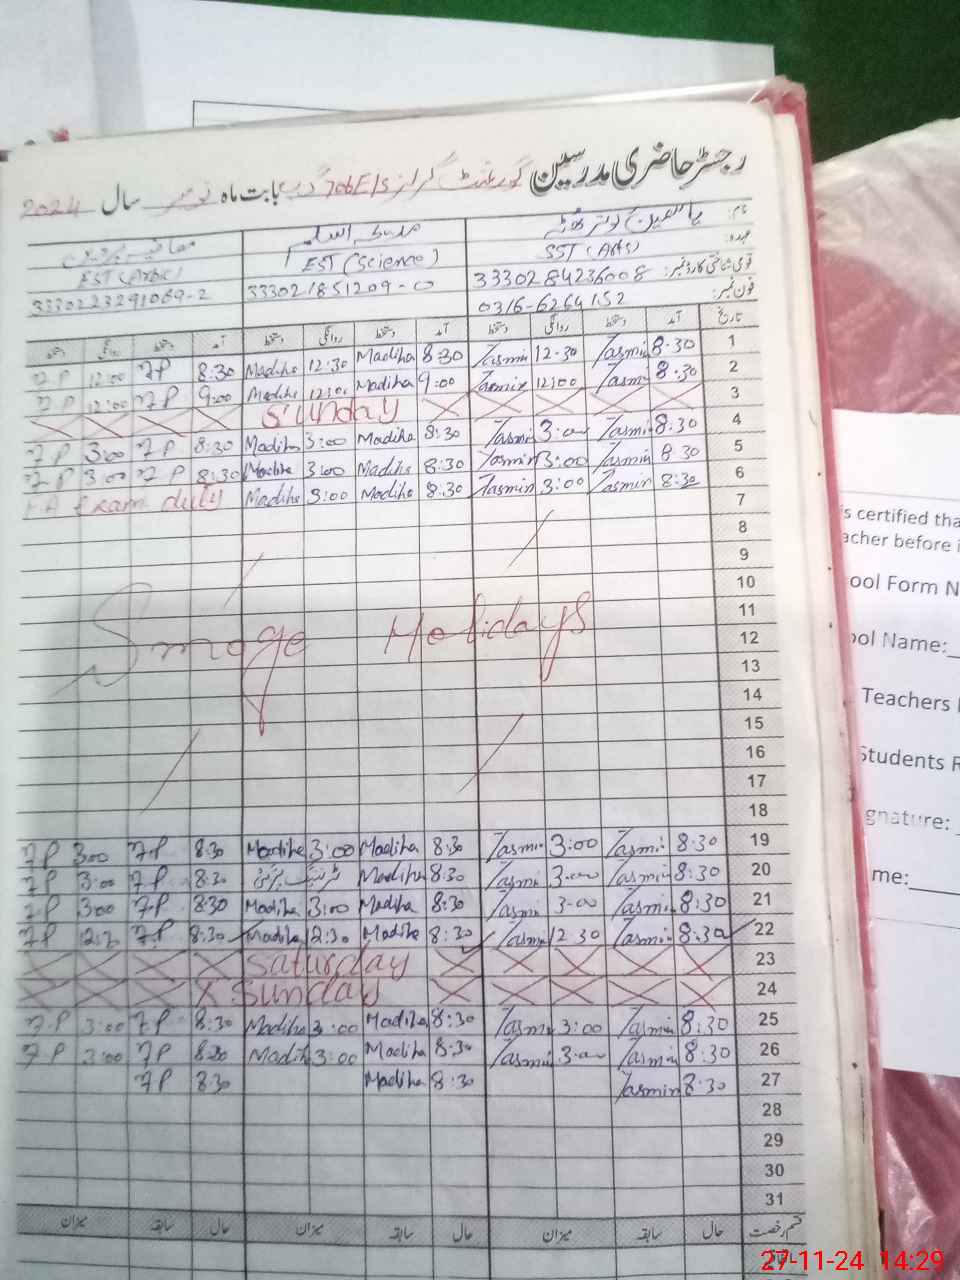 رجسٹر حاضری مدرسین گورنمنٹ گرلز 706E/S گ ب بابت ماہ نومبر سال 2024
نام:
عہدہ: SST (Arts) EST (Science) EST (Arbic)
قومی شناختی کارڈ نمبر: 3330284236008 333021851209-0 3330223291069-2
فون نمبر: 0316-6264152
تاریخ آمد دستخط روانگی دستخط آمد دستخط روانگی دستخط آمد دستخط روانگی دستخط
1 8:30 Tasmin 12-30 Tasmin 8:30 Madiha 12:30 Madiha 8:30 7P 12:00 7P
2 8:30 Tasmin 12:00 Tasmin 9:00 Madiha 12:00 Madiha 9:00 7P 12:00 7P
3 Sunday
4 8:30 Tasmin 3:00 Tasmin 8:30 Madiha 3:00 Madiha 8:30 7P 3:00 7P
5 8:30 Tasmin 3:00 Tasmin 8:30 Madiha 3:00 Madiha 8:30 7P 3:00 7P
6 8:30 Tasmin 3:00 Tasmin 8:30 Madiha 3:00 Madiha Exam duty
7
8
9
10
11
Smoge Holidays
12
13
14
15
16
17
18
19 8:30 Tasmin 3:00 Tasmin 8:30 Madiha 3:00 Madiha 8:30 7P 3:00 7P
20 8:30 Tasmin 3:00 Tasmin 8:30 Madiha 8:30 7P 3:00 7P
21 8:30 Tasmin 3:00 Tasmin 8:30 Madiha 3:00 Madiha 8:30 7P 3:00 7P
22 8:30 Tasmin 12:30 Tasmin 8:30 Madiha 12:30 Madiha 8:30 7P 12:30 7P
23 Saturday
24 Sunday
25 8:30 Tasmin 3:00 Tasmin 8:30 Madiha 3:00 Madiha 8:30 7P 3:00 7P
26 8:30 Tasmin 3:00 Tasmin 8:30 Madiha 3:00 Madiha 8:30 7P 3:00 7P
27 8:30 Tasmin 8:30 Madiha 8:30 7P
28
29
30
31
قسم رخصت حال سابقہ میزان حال سابقہ میزان حال سابقہ میزان
is certified tha
acher before i
ool Form N
ool Name:
Teachers
Students R
gnature:
me:
27-11-24 14:29